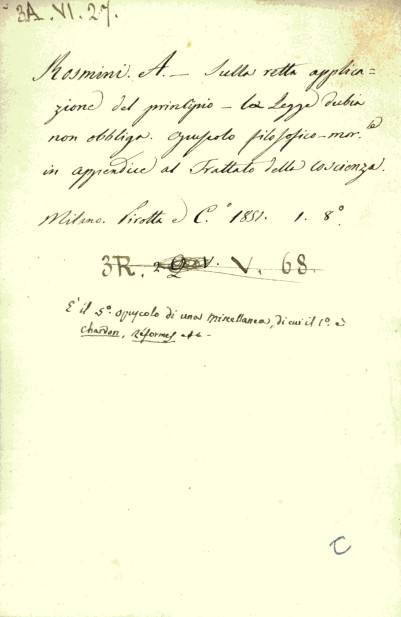 3A. VI. 27.
Rosmini. A. — Sulla retta applica=
zione del principio — La Legge dubia
non obbliga. opuscolo filosofico-mor.le
in appendice al Trattato della coscienza.
Milano. Pirotta e C.° 1851. 1. 8°.
3R. V. 68.
E' il 5°. opuscolo di una miscellanea, di cui il 1°. è
Chardon, Réformes etc -
C